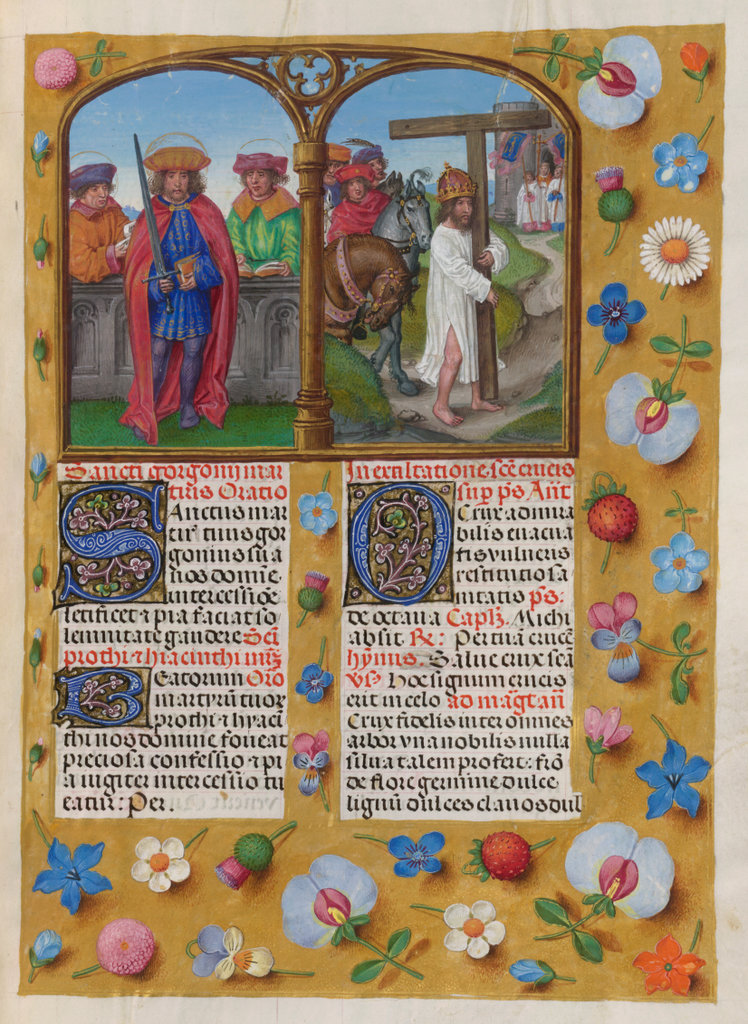 Sancti gorgonij mar
tiris Oratio
Sanctus mar
tir tuus gor
gonius sua
nos domine
intercessiōe
letificet ⁊ pia faciat so
lennitate gaudere Scī
prothi ⁊ hiacinthi
Beatorum Orō
martyrū tuor
prothi ⁊ hyaci
thi nos domine foueat
preciosa confessio ⁊ pi
a iugiter intercessio tu
eatur: Per.
In exaltatione scē crucis
sup ps Ant
O Crux admira
bilis euacua
tis vulneris
restitutio sa
nitatis ps:
de octaua Michi
absit Per tuā crucē
hymnus. Salue crux scā
Hoc signum crucis
erit in celo ad
Crux fidelis inter omnes
arbor vna nobilis nulla
silua talem profert: frō
de flore germine dulce
lignū dulces clauos dul